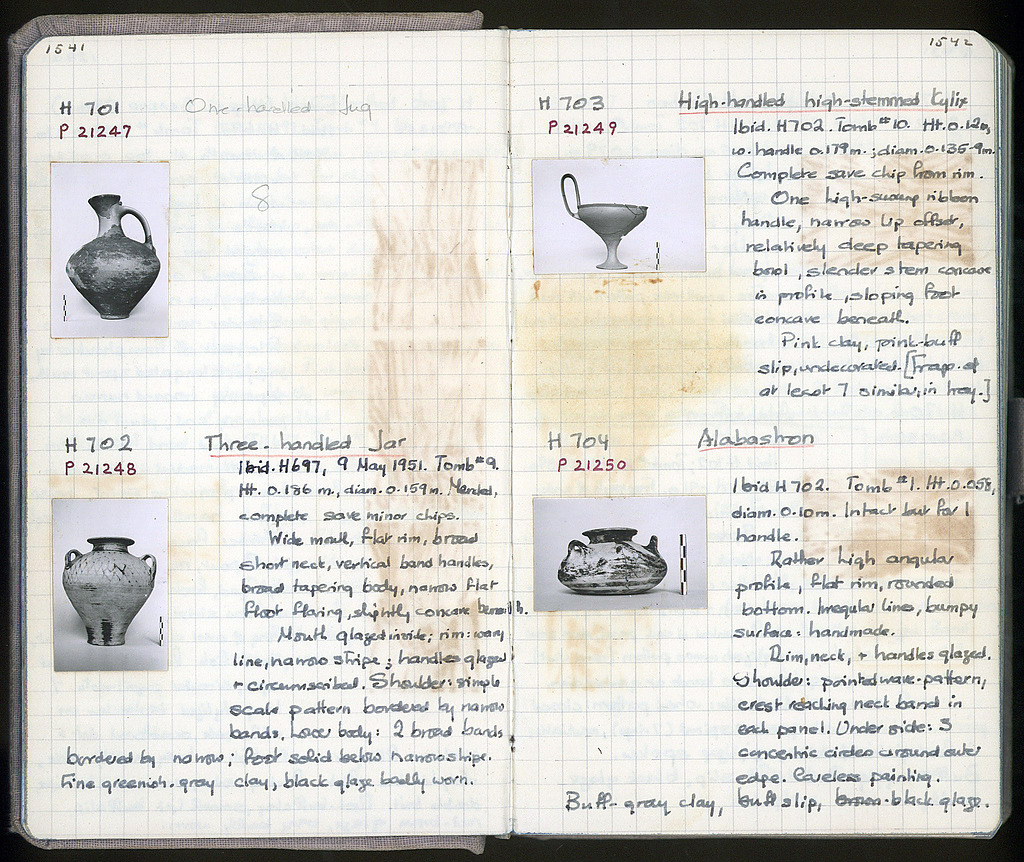 1541
H 701
One-handled Jug
P 21247
8
H 702
Three-handled Jar
P 21248
Ibid. H697, 9 May 1951. Tomb #9.
Ht. 0.186 m., diam. 0.159 m. Mended,
complete save minor chips.
Wide mouth, flat rim, broad
short neck, vertical band handles,
broad tapering body, narrow flat
foot flaring, slightly concave beneath.
Mouth glazed inside; rim: wavy
line, narrow stripe; handles glazed
+ circumscribed. Shoulder: simple
scale pattern bordered by narrow
bands. Lower body: 2 broad bands
bordered by narrow; foot solid below narrow stripe.
Fine greenish-gray clay, black glaze badly worn.
1542
H 703
High-handled high-stemmed Kylix
P 21249
Ibid. H702. Tomb #10. Ht. 0.12m,
w. handle 0.179 m.; diam. 0.135-9m.
Complete save chip from rim.
One high-swung ribbon
handle, narrow lip offset,
relatively deep tapering
bowl, slender stem concave
in profile, sloping foot
concave beneath.
Pink clay, pink-buff
slip, undecorated. [Frags. of
at least 7 similar, in tray.]
H 704
Alabastron
P 21250
Ibid H702. Tomb #1. Ht. 0.058,
diam. 0.10m. Intact but for 1
handle.
Rather high angular
profile, flat rim, rounded
bottom. Irregular lines, bumpy
surface: handmade.
Rim, neck, + handles glazed.
Shoulder: pointed wave-pattern,
crest reaching neck band in
each panel. Under side: 3
concentric circles around outer
edge. Careless painting.
Buff-gray clay, buff slip, brown-black glaze.